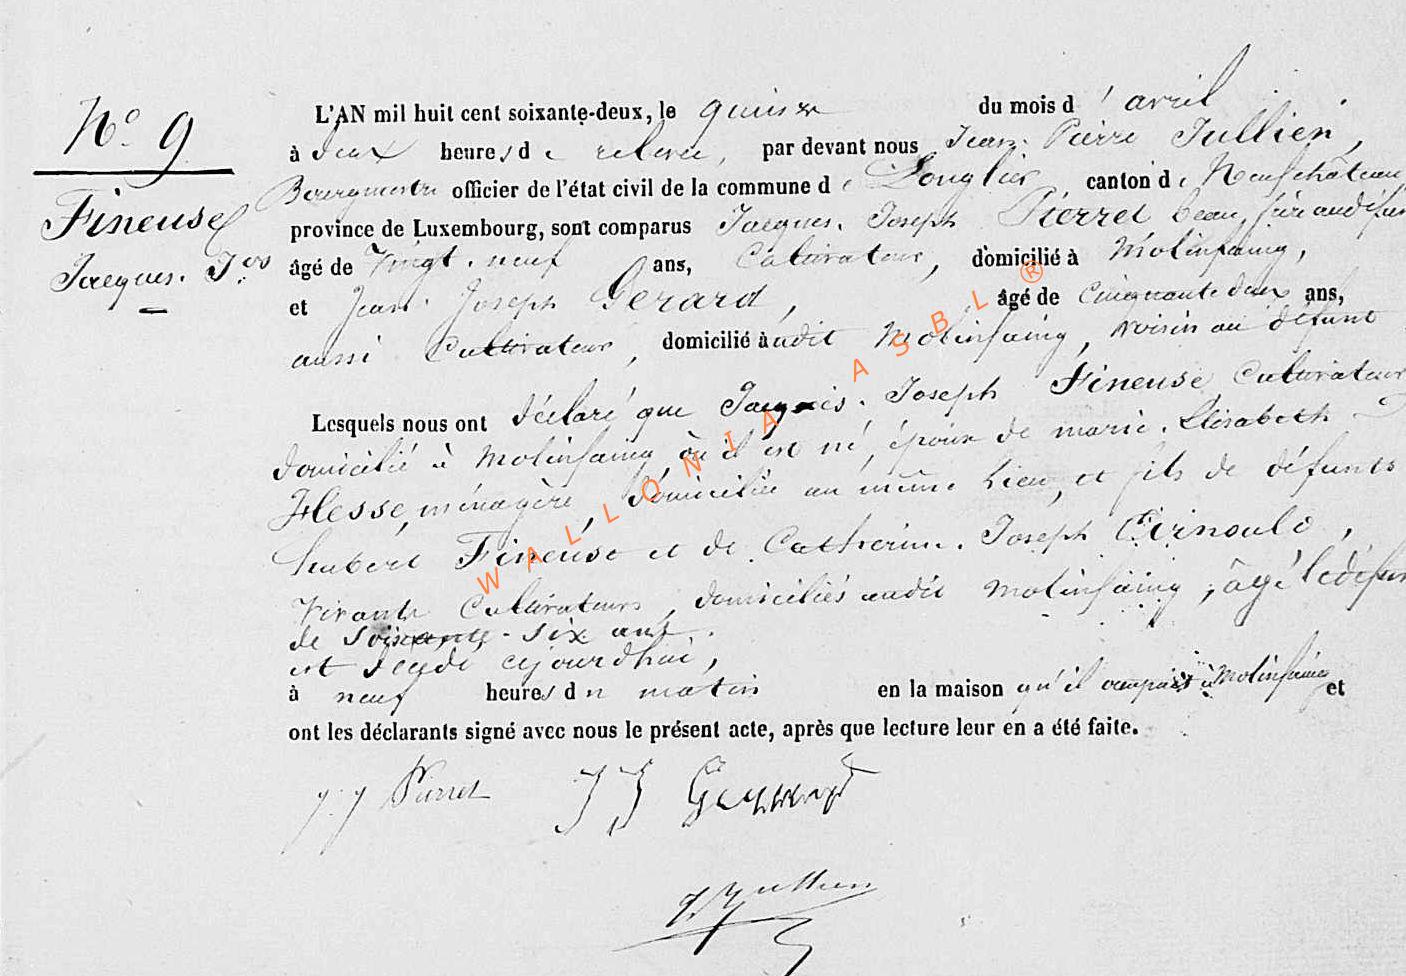 N° 9
Fineuse
Jacques. Jos
L'AN mil huit cent soixante-deux, le quinze du mois d'avril
à deux heures de relevée, par devant nous Jean. Pierre Jullien,
Bourgmestre officier de l'état civil de la commune de Longlier, canton de Neufchâteau,
province de Luxembourg, sont comparus Jacques. Joseph Pierret beau, frère au défunt
âgé de Vingt. neuf ans, Cultivateur, domicilié à Molinfaing,
et Jean. Joseph Gerard, âgé de Cinquante deux ans,
aussi Cultivateur, domicilié àudit Molinfaing, voisin au défunt
Lesquels nous ont déclaré que Jacques. Joseph Fineuse Cultivateur
domicilié à Molinfaing, où il est né, époux de marie. Elisabeth
Hesse, ménagère, domiciliée au même lieu, et fils de défunts
hubert Fineuse et de Catherine. Joseph Arnould,
Vivants Cultivateurs, domiciliés audit Molinfaing, âgé le défunt
de soixante-six ans.
est décédé cejourd'hui,
à neuf heures du matin en la maison qu'il occupait à Molinfaing et
ont les déclarants signé avec nous le présent acte, après que lecture leur en a été faite.
J. J Pierret J J Gerard
J P Jullien
WALLONIA ASBL ®